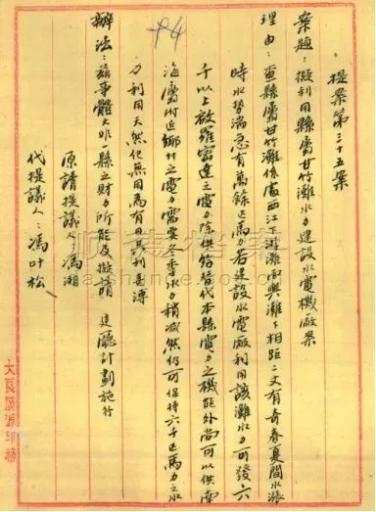 提案第三十五案
案題：擬利用縣屬甘竹灘水力建設水電機廠案
理由：查縣屬甘竹灘係處西江下游灘面與灘下相距二丈有奇春夏間水漲
時水勢湍急有萬餘匹馬力若建設水電廠利用該灘水力可發六
千以上啟羅華達之電力除供給替代本縣電力之機能外尚可以供南
海屬附近鄉村之電力需要冬季水力稍減然仍可保持六千匹馬力之水
力利用天然化無用為有用其利甚溥
辦法：茲事體大非一縣之財力所能及擬請 建廳計劃施行
原請提議人：馮湘
代提議人：馮叶松
94